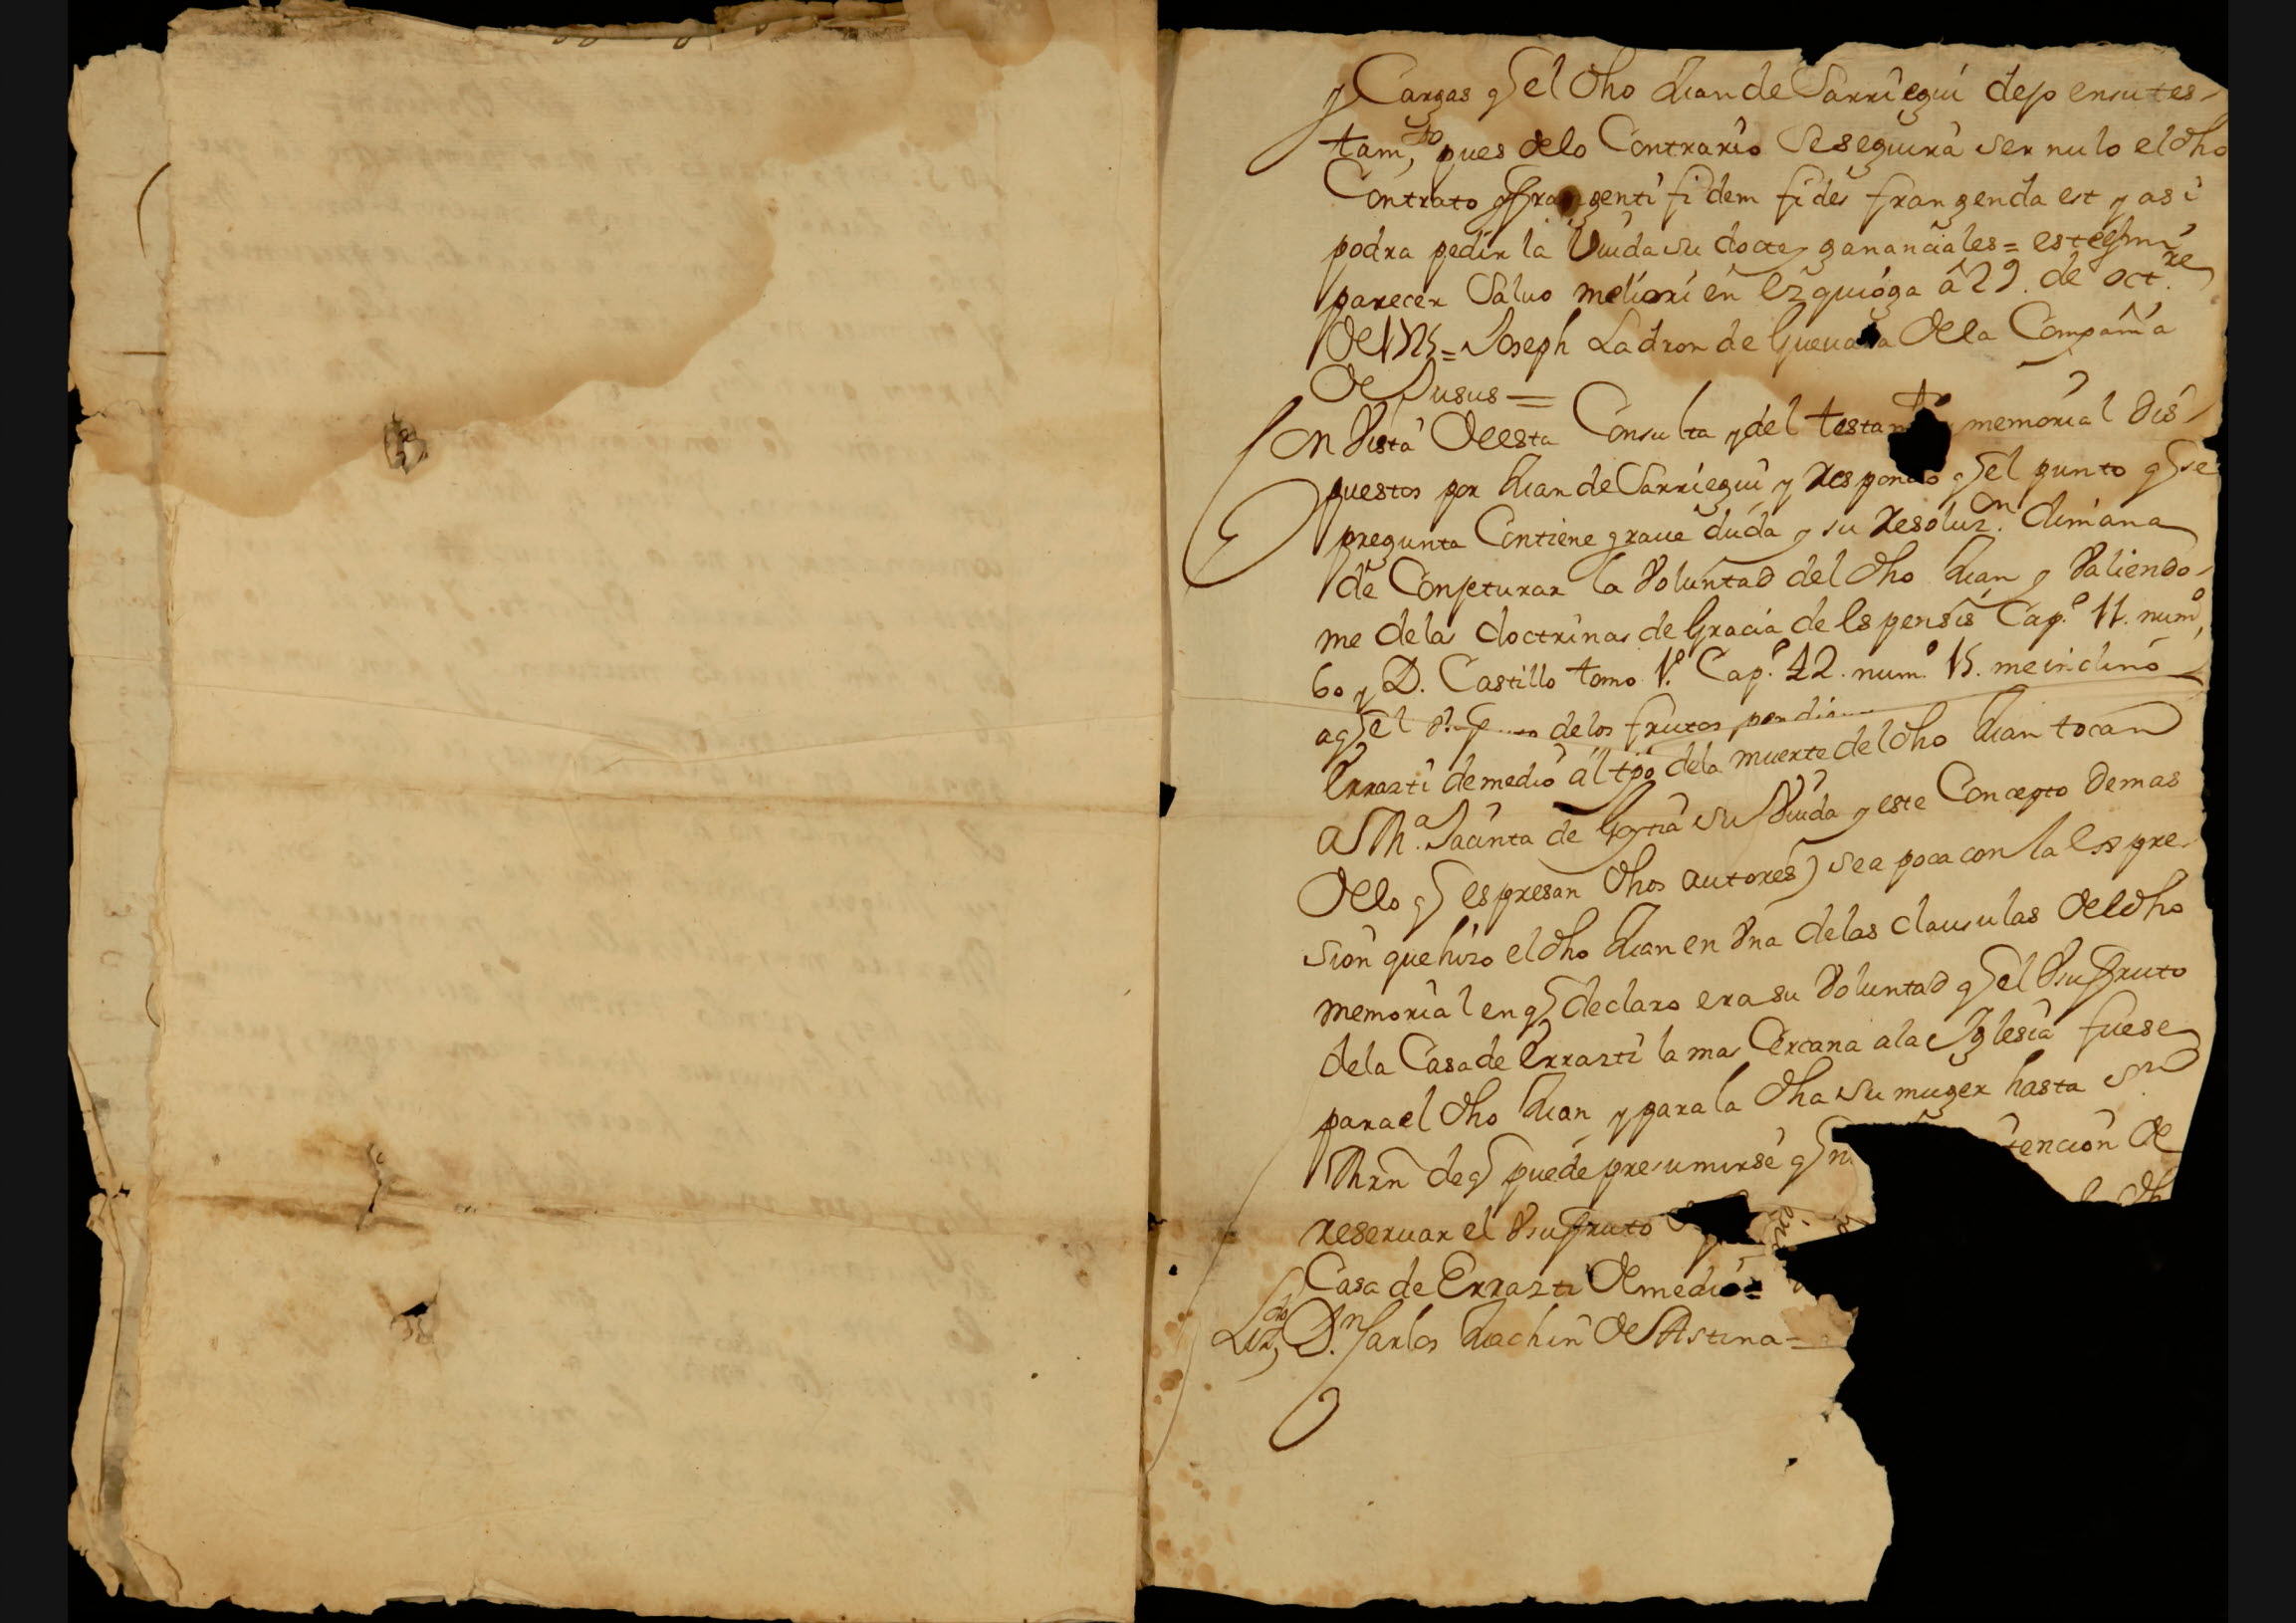 y Cargas q el dho Juan de Sarriegui dejo en su tes-
tam,to pues delo Contrario se seguira ser nulo el dho
Contrato q frangenti fidem fides frangenda est y asi
podra pedir la Viuda su dote y gananciales = este es mi
parecer Salvo meliori en Ezquioga â 29. de oct.re
De = Joseph Ladron de Guevara Dela Compañia
De Jusus =
En Vista De esta Consulta y del testam.to memorial dis-
puestos por Juan de Sarriegui y respondo q el punto q se
pregunta Contiene graue duda y su resoluz.n dimana
de Conjeturar la Voluntad del dho Juan y Valiendo-
me de las doctrinas de Gracia de Espensis Cap.o 11. num,o
60 y D. Castillo tomo 1.o Cap.o 42. num.o 15. me inclino
a q el delos frutos
Errazti de medio al tpo dela muerte del dho Juan tocan
a M.a Jacinta de su Viuda y este Concepto demas
Delo q espresan dhos autores) se apoca con la Espre-
sion que hizo el dho Juan en Vna delas clausulas Del dho
memorial en q declaro era su Voluntad q el Vsufruto
dela Casa de Errazti la mas Cercana ala Iglesia fuese
para el dho Juan y para la dha su muger hasta
de q puede presumirse q tencion de
reseruar el Vsufruto
Casa de Errazti De medio =
D.n Carlos Juachin De Astina =